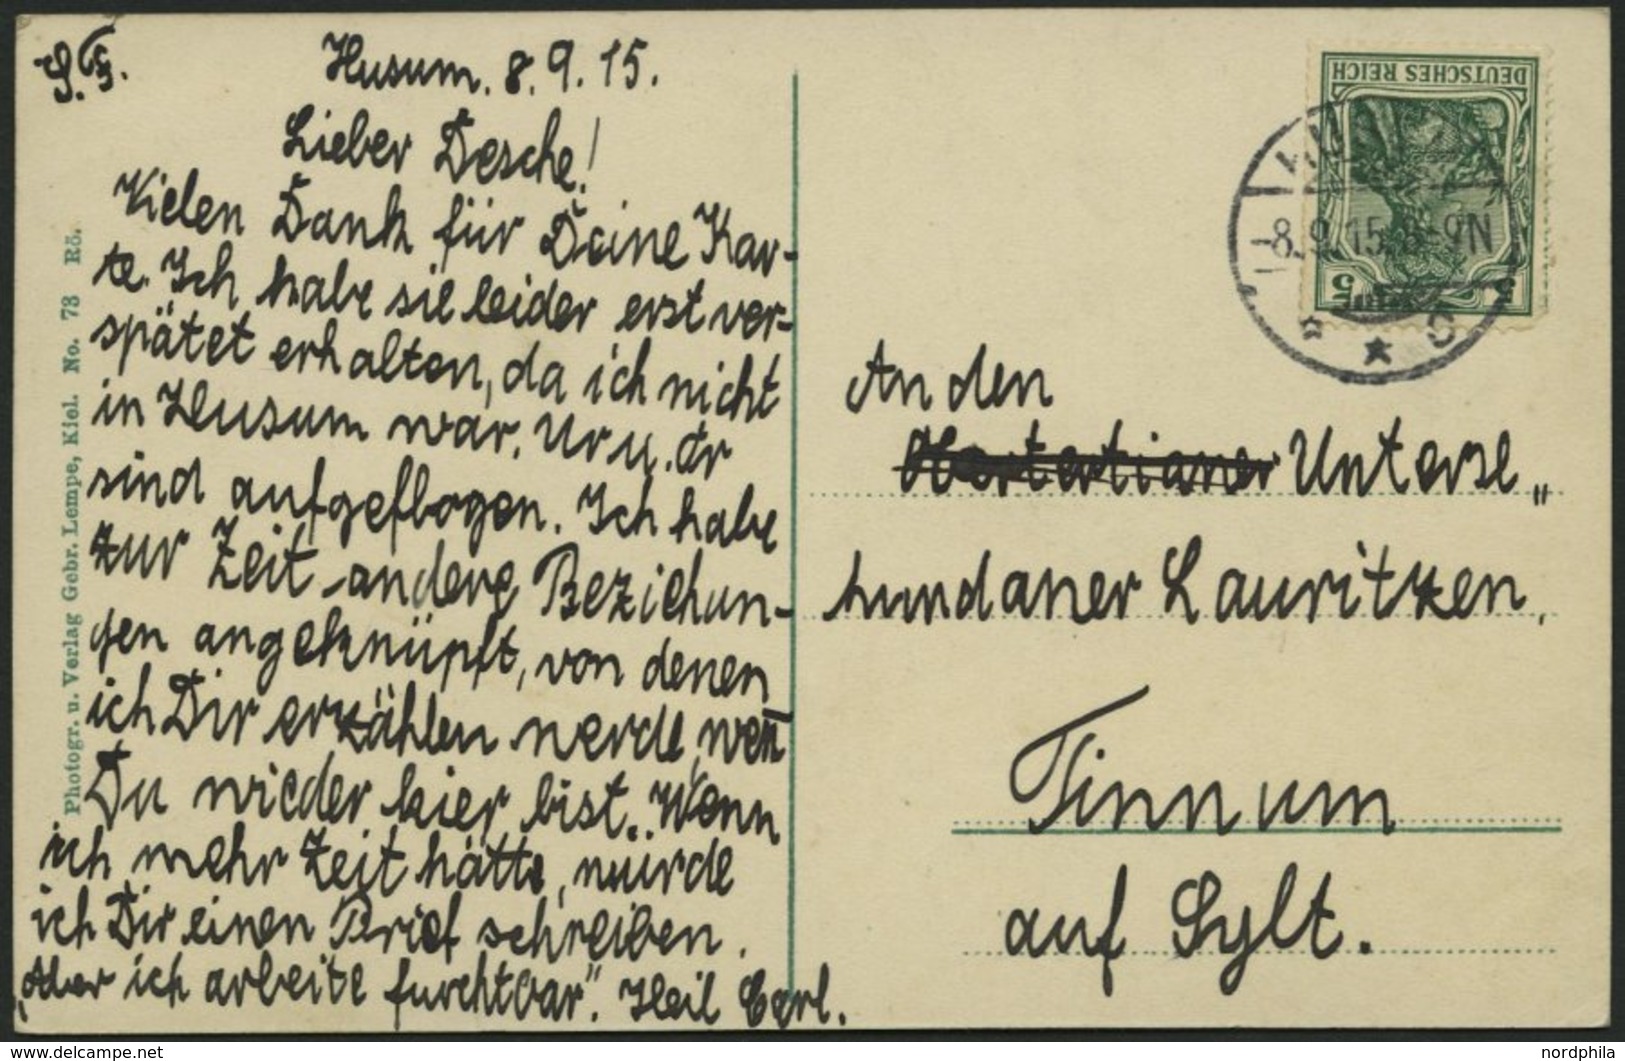 Husum. 8. 9. 15.
Lieber Desche!
Vielen Dank für Deine Kar-
te. Ich habe sie leider erst ver-
spätet erhalten, da ich nicht
in Husum war. Ur u. Or
sind aufgeflogen. Ich habe
zur Zeit andere Beziehun-
gen angeknüpft, von denen
ich Dir erzählen werde, wen̄
Du wieder hier bist. „Wenn
ich mehr Zeit hätte, würde
ich Dir einen Brief schreiben.
„Aber ich arbeite furchtbar“. Heil Carl.
Photogr. u. Verlag Gebr. Lempe, Kiel. No. 73 Rö.
DEUTSCHES REICH
5 5
-8.9.15.8-9N
* * c
An den
Obertertianer Unterse„
kundaner Lauritzen,
Tinnum
auf Sylt.
nordphila